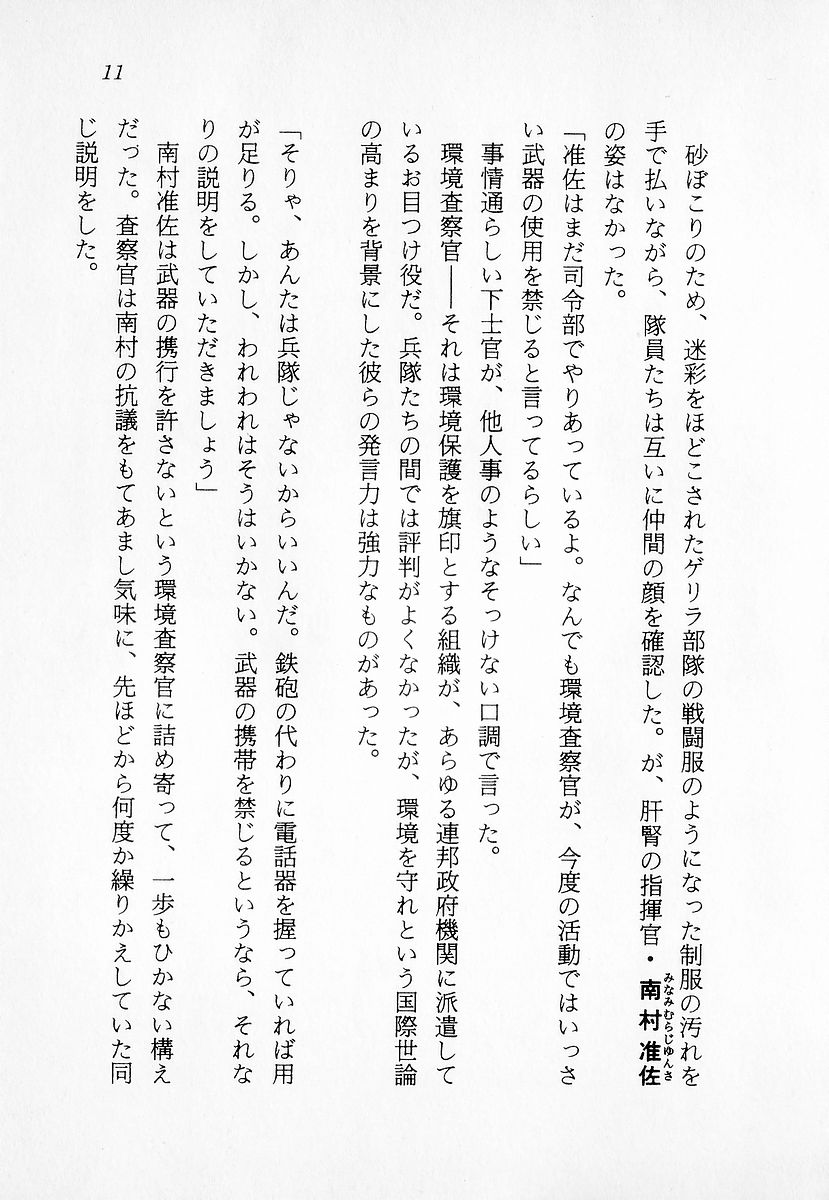 11
砂ぼこりのため、迷彩をほどこされたゲリラ部隊の戦闘服のようになった制服の汚れを
手で払いながら、隊員たちは互いに仲間の顔を確認した。が、肝腎の指揮官・南村准佐
みなみむらじゅんさ
の姿はなかった。
「准佐はまだ司令部でやりあっているよ。なんでも環境査察官が、今度の活動ではいっさ
い武器の使用を禁じると言ってるらしい」
事情通らしい下士官が、他人事のようなそっけない口調で言った。
環境査察官――それは環境保護を旗印とする組織が、あらゆる連邦政府機関に派遣して
いるお目つけ役だ。兵隊たちの間では評判がよくなかったが、環境を守れという国際世論
の高まりを背景にした彼らの発言力は強力なものがあった。
「そりゃ、あんたは兵隊じゃないからいいんだ。鉄砲の代わりに電話器を握っていれば用
が足りる。しかし、われわれはそうはいかない。武器の携帯を禁じるというなら、それな
りの説明をしていただきましょう」
南村准佐は武器の携行を許さないという環境査察官に詰め寄って、一歩もひかない構え
だった。査察官は南村の抗議をもてあまし気味に、先ほどから何度か繰りかえしていた同
じ説明をした。